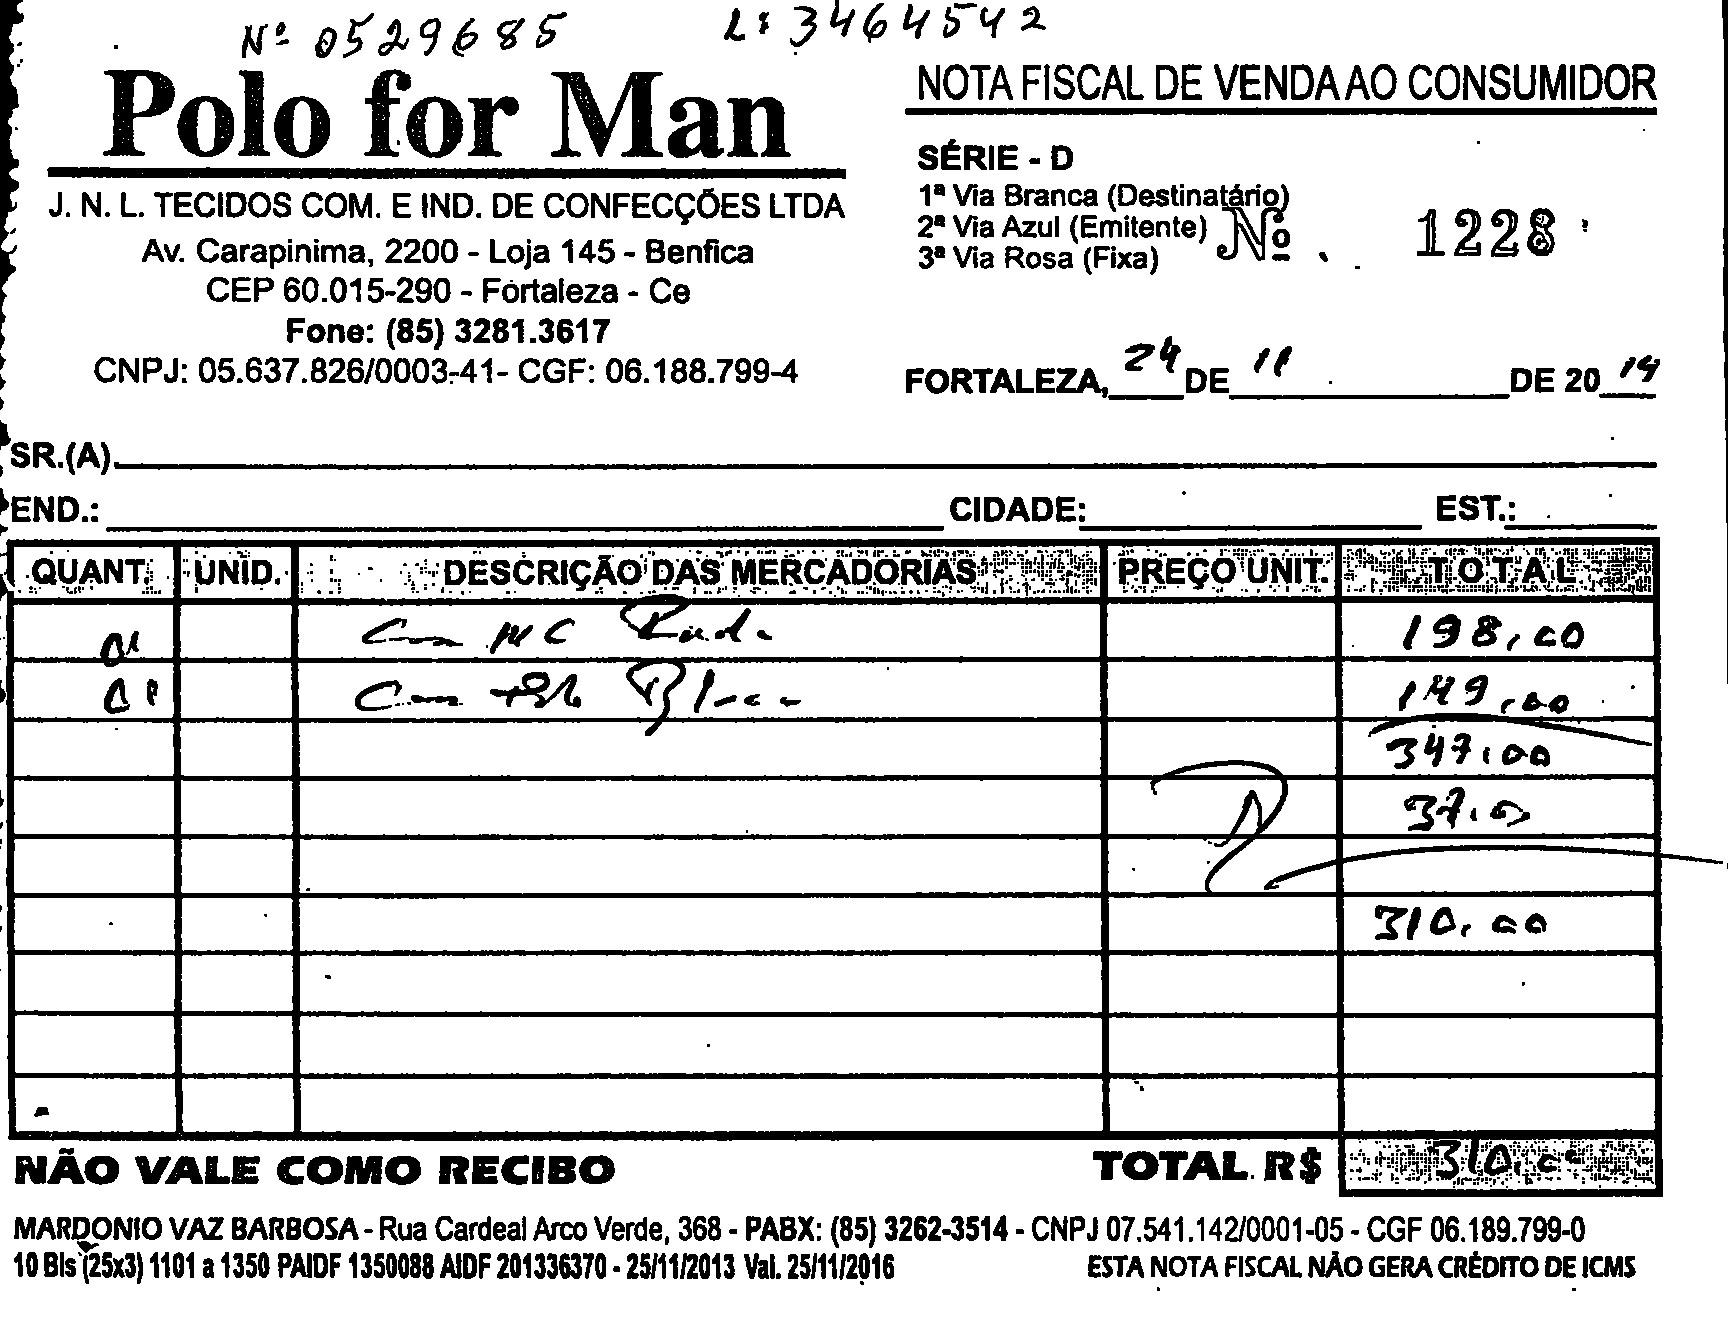 Nº 0529685 L: 3464542
Polo for Man
J. N. L. TECIDOS COM. E IND. DE CONFECÇÕES LTDA
Av. Carapinima, 2200 - Loja 145 - Benfica
CEP 60.015-290 - Fortaleza - Ce
Fone: (85) 3281.3617
CNPJ: 05.637.826/0003-41- CGF: 06.188.799-4
NOTA FISCAL DE VENDA AO CONSUMIDOR
SÉRIE - D
1ª Via Branca (Destinatário)
2ª Via Azul (Emitente)
3ª Via Rosa (Fixa)
Nº 1228
FORTALEZA, 24 DE 11 DE 2014
SR.(A)
END.: CIDADE: EST.:
QUANT. UNID. DESCRIÇÃO DAS MERCADORIAS PREÇO UNIT. TOTAL
01 MC 198,00
01 149,00
347,00
37,00
310,00
NÃO VALE COMO RECIBO TOTAL R$ 310,00
MARDONIO VAZ BARBOSA - Rua Cardeal Arco Verde, 368 - PABX: (85) 3262-3514 - CNPJ 07.541.142/0001-05 - CGF 06.189.799-0
10 Bls (25x3) 1101 a 1350 PAIDF 1350088 AIDF 201336370 - 25/11/2013 Val. 25/11/2016 ESTA NOTA FISCAL NÃO GERA CRÉDITO DE ICMS